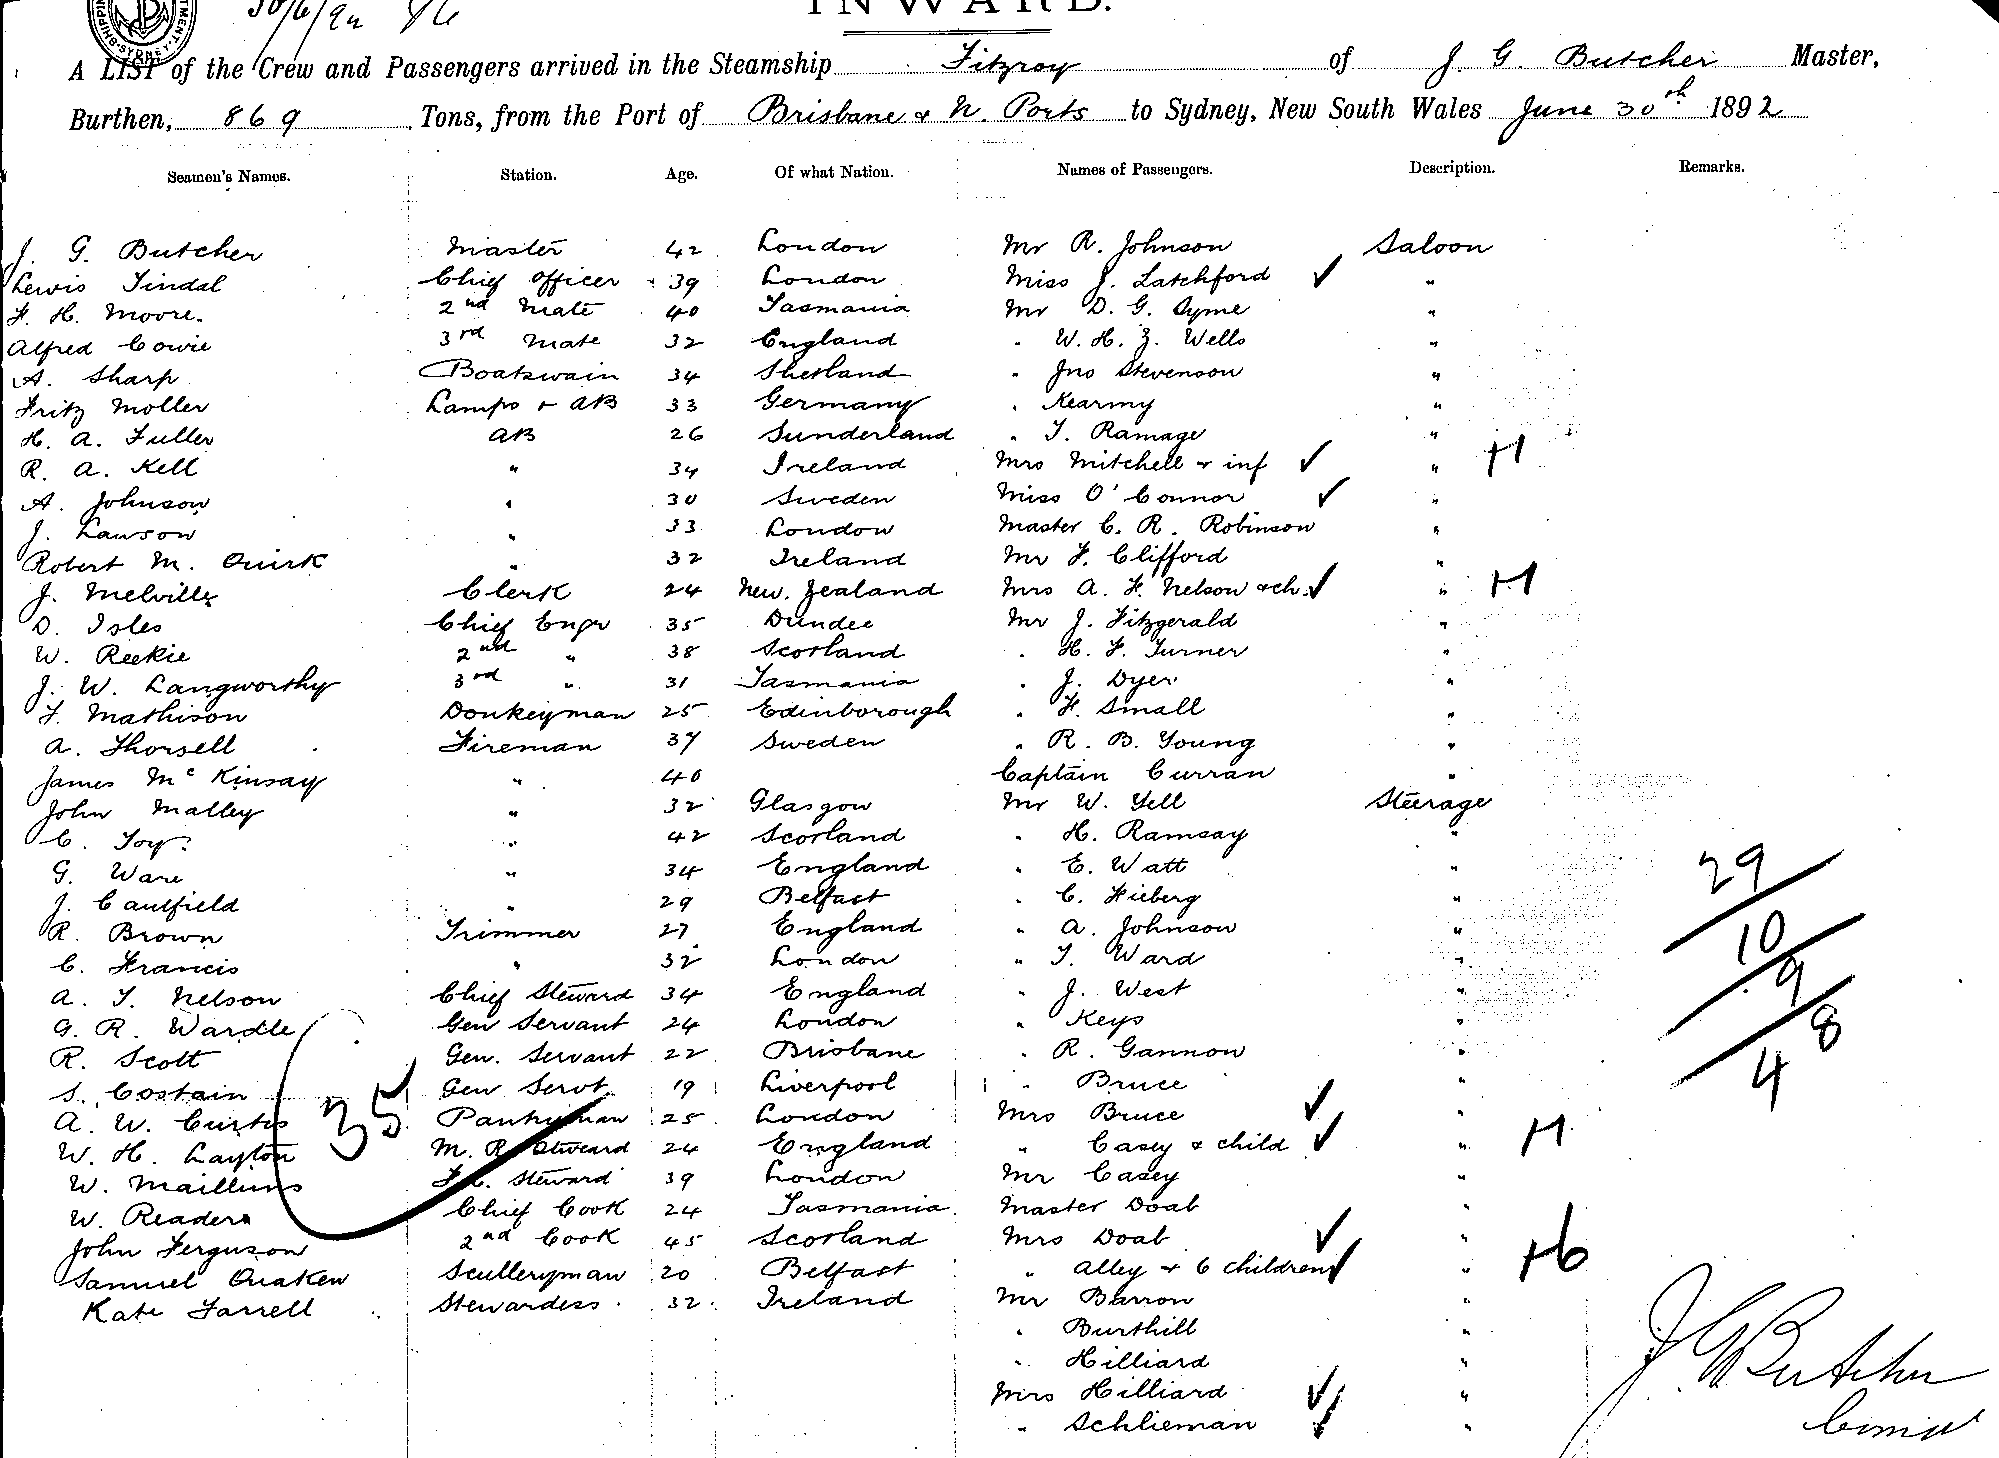 30/6/92
INWARD.
A LIST of the Crew and Passengers arrived in the Steamship Fitzroy of J. G. Butcher Master,
Burthen, 869 Tons, from the Port of Brisbane & N. Ports to Sydney, New South Wales June 30th 1892
Seamen's Names. Station. Age. Of what Nation. Names of Passengers. Description. Remarks.
J. G. Butcher Master 42 London Mr R. Johnson Saloon
Lewis Tindal Chief Officer 39 London Miss J. Latchford ✓ "
F. H. Moore. 2nd Mate 40 Tasmania Mr D. G. Syme "
Alfred Cowie 3rd Mate 32 England " W. H. Z. Wells "
A. Sharp Boatswain 34 Shetland " Jno Stevenson "
Fritz Moller Lamps & AB 33 Germany " Kearmy "
H. A. Fuller AB 26 Sunderland " T. Ramage "
R. A. Kell " 34 Ireland Mrs Mitchell & inf ✓ " H
A. Johnson " 30 Sweden Miss O'Connor ✓ "
J. Lawson " 33 London Master C. R. Robinson "
Robert M. Quirk " 32 Ireland Mr F. Clifford "
J. Melville Clerk 24 New. Zealand Mrs A. F. Nelson & ch. ✓ " H
D. Isles Chief Engr 35 Dundee Mr J. Fitzgerald "
W. Reekie 2nd " 38 Scotland " H. F. Turner "
J. W. Langworthy 3rd " 31 Tasmania " J. Dyer "
F. Mathison Donkeyman 25 Edinborough " F. Small "
A. Thorsell Fireman 37 Sweden " R. B. Young "
James Mc Kinsay " 40 Captain Curran "
John Malley " 32 Glasgow Mr W. Yell Steerage
C. Toy " 42 Scotland " H. Ramsay "
G. Ware " 34 England " E. Watt "
J. Caulfield " 29 Belfast " C. Fieberg "
R. Brown Trimmer 27 England " A. Johnson "
C. Francis " 32 London " T. Ward "
A. T. Nelson Chief Steward 34 England " J. West "
G. R. Wardle Gen Servant 24 London " Keys "
R. Scott Gen. Servant 22 Brisbane " R. Gannon "
S. Costain Gen Servt. 19 Liverpool " Bruce "
A. W. Curtis Pantryman 25 London Mrs Bruce ✓ "
W. H. Layton M. R. Steward 24 England " Casey & child ✓ " H
W. Maillums Steward 39 London Mr Casey "
W. Readers Chief Cook 24 Tasmania Master Doab "
John Ferguson 2nd Cook 45 Scotland Mrs Doab ✓ "
Samuel Quaken Sculleryman 20 Belfast " Alley & 6 children ✓ " H6
Kate Farrell Stewardess 32 Ireland Mr Barron "
" Burthill "
" Hilliard "
Mrs Hilliard ✓ "
" Schlieman ✓ "
35
29
10
9
8
4
J G Butcher